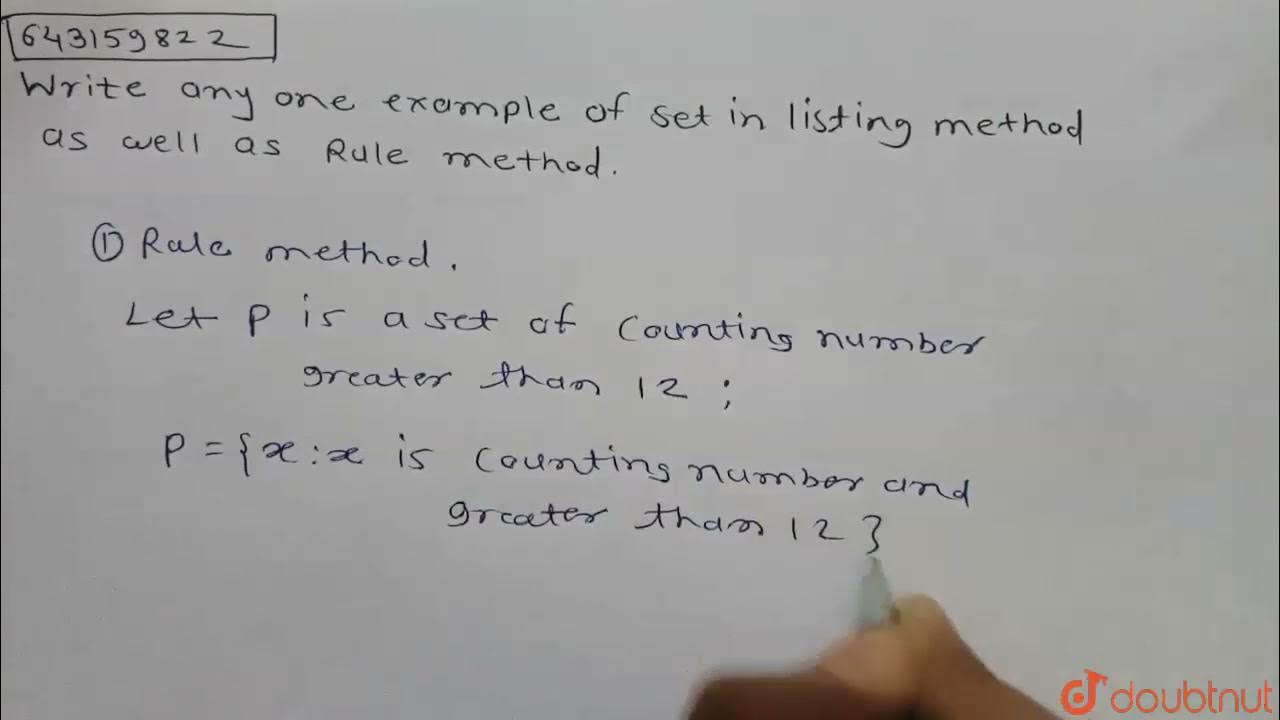 643159822
Write any one example of set in listing method
as well as Rule method.
① Rule method.
Let P is a set of Counting number
greater than 12 ;
P = {x : x is Counting number and
greater than 12 }
doubtnut